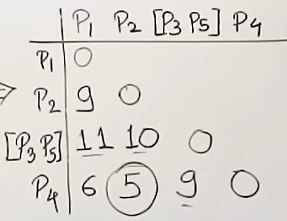 P1 P2 [P3 P5] P4
P1 0
P2 9 0
[P3 P5] 11 10 0
P4 6 5 9 0